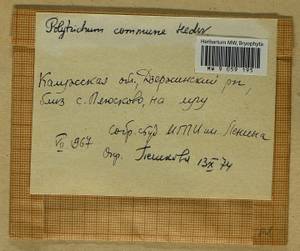 Polytrichum commune Hedw
Herbarium MW, Bryophyta
MW 9 059 195
Калужская обл, Дзержинский р-н,
близ с. Плюсково, на лугу
собр. студ. МГПИ им. Ленина
VII 1967
Опр. Пешкова 13 IX 74